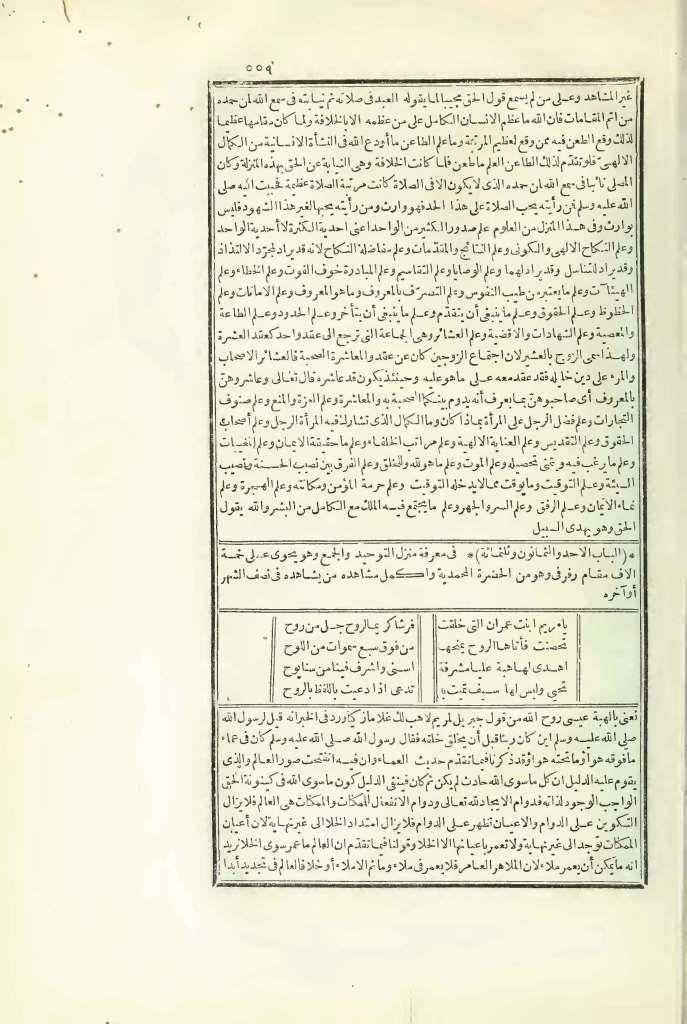 ٥٥٩
غير المشاهد وعلى من لم يسمع قول الحق مجيبا لما يقوله العبد فى صلاته ثم نيابته فى سمع الله لمن حمده
من اتم المقامات فان الله ما عظم الانسان الكامل على من عظمه الا بالخلافة ولما كان مقامها عظيما
لذلك وقع الطعن فيه ممن وقع لعظيم المرتبة وما علم الطاعن ما أودع الله فى النشأة الانسانية من الكمال
الالهى فلو تقدم لذلك الطاعن العلم ما طعن فلما كانت الخلافة وهى النيابة عن الحق بهذه المنزلة وكان
المصلى نائبا فى سمع الله لمن حمده الذى لا يكون الا فى الصلاة كانت مرتبة الصلاة عظيمة فحببت اليه صلى
الله عليه وسلم فمن رأيته يحب الصلاة على هذا الحد فهو وارث ومن رأيته يحبها لغير هذا الشهود فليس
بوارث وفى هذا المنزل من العلوم علم صدور الكثير من الواحد اعنى احدية الكثرة لا أحدية الواحد
وعلم النكاح الالهى والكونى وعلم النتائج والمقدمات وعلم مفاضلة النكاح لانه قد يراد لمجرد الالتذاذ
وقد يراد للتناسل وقد يراد لهما وعلم الوصايا وعلم التقاسيم وعلم المبادرة خوف الفوت وعلم الخطاء وعلم
الهيئات وعلم ما يعتبر من طيب النفوس وعلم التصرف بالمعروف وما هو المعروف وعلم الامانات وعلم
الحظوظ وعلم الحقوق وعلم ما ينبغى أن يتقدم وعلم ما ينبغى أن يتأخر وعلم الحدود وعلم الطاعة
والمعصية وعلم الشهادات والاقضية وعلم العشائر وهى الجماعة التى ترجع الى عقد واحد كعقد العشرة
ولهذا سمى الزوج بالعشير لان اجتماع الزوجين كان عن عقد والمعاشرة الصحبة فالعشائر الاصحاب
والمرء على دين خليله فقد عقد معه على ما هو عليه وحينئذ يكون قد عاشره قال تعالى وعاشروهن
بالمعروف أى صاحبوهن بما يعرف أنه يدوم بينكما الصحبة به والمعاشرة وعلم العزة والمنع وعلم صنوف
التجارات وعلم فضل الرجل على المرأة بماذا كان وما الكمال الذى تشارك فيه المرأة الرجل وعلم أصحاب
الحقوق وعلم التقديس وعلم العناية الالهية وعلم مراتب الخلفاء وعلم ما حقيقة الايمان وعلم المغيبات
وعلم ما يرغب فيه ويتمنى تحصيله وعلم الموت وعلم ما هو لله وللخلق وعلم الفرق بين نصيب الحسنة ونصيب
السيئة وعلم التوقيت وما يوقت مما لا يدخله التوقيت وعلم حرمة المؤمن ومكانته وعلم الهجرة وعلم
نماء الايمان وعلم الرفق وعلم السر والجهر وعلم ما يجتمع فيه الملك مع الكامل من البشر والله يقول
الحق وهو يهدى السبيل
* (الباب الاحد والثمانون وثلثمائة) * فى معرفة منزل التوحيد والجمع وهو يحوى على خمسة
الاف مقام رفرفى وهو من الحضرة المحمدية واكمل مشاهده من يشاهده فى نصف الشهر
أو آخره
يا مريم ابنت عمران التى خلقت فرشا كريما لروح جل من روح
تحصنت فأتاها الروح يمنحها من فوق سبع سموات من اللوح
اهدى لها هبة عليا مشرفة اسنى واشرف فينا من سنا يوح
تحيى وليس لها سيف تميت به تدعى اذا دعيت باللفظ بالروح
نعنى بالهبة عيسى روح الله من قول جبريل لمريم لاهب لك غلاما زكيا ورد فى الخبر انه قيل لرسول الله
صلى الله عليه وسلم اين كان ربنا قبل أن يخلق خلقه فقال رسول الله صلى الله عليه وسلم كان فى عماء
ما فوقه هواء وما تحته هواء وقد ذكرنا فيما تقدم حديث العماء وان فيه انفتحت صور العالم والذى
يقوم عليه الدليل ان كل ما سوى الله حادث لم يكن ثم كان فينفى الدليل كون ما سوى الله فى كينونة الحق
الواجب الوجود لذاته فدوام الايجاد لله تعالى ودوام الانفعال للممكنات والممكنات هى العالم فلا يزال
التكوين على الدوام والاعيان تظهر على الدوام فلا يزال امتداد الخلا الى غير نهاية لان أعيان
الممكنات توجد الى غير نهاية ولا تعمر باعيانها الا الخلا وقولنا فيما تقدم ان العالم ما عمر سوى الخلا نريد
انه ما يمكن أن يعمر ملاء لان الملا هو العامر فلا يعمر فى ملاء وما ثم الا ملاء أو خلا فالعالم فى تجديد أبدا